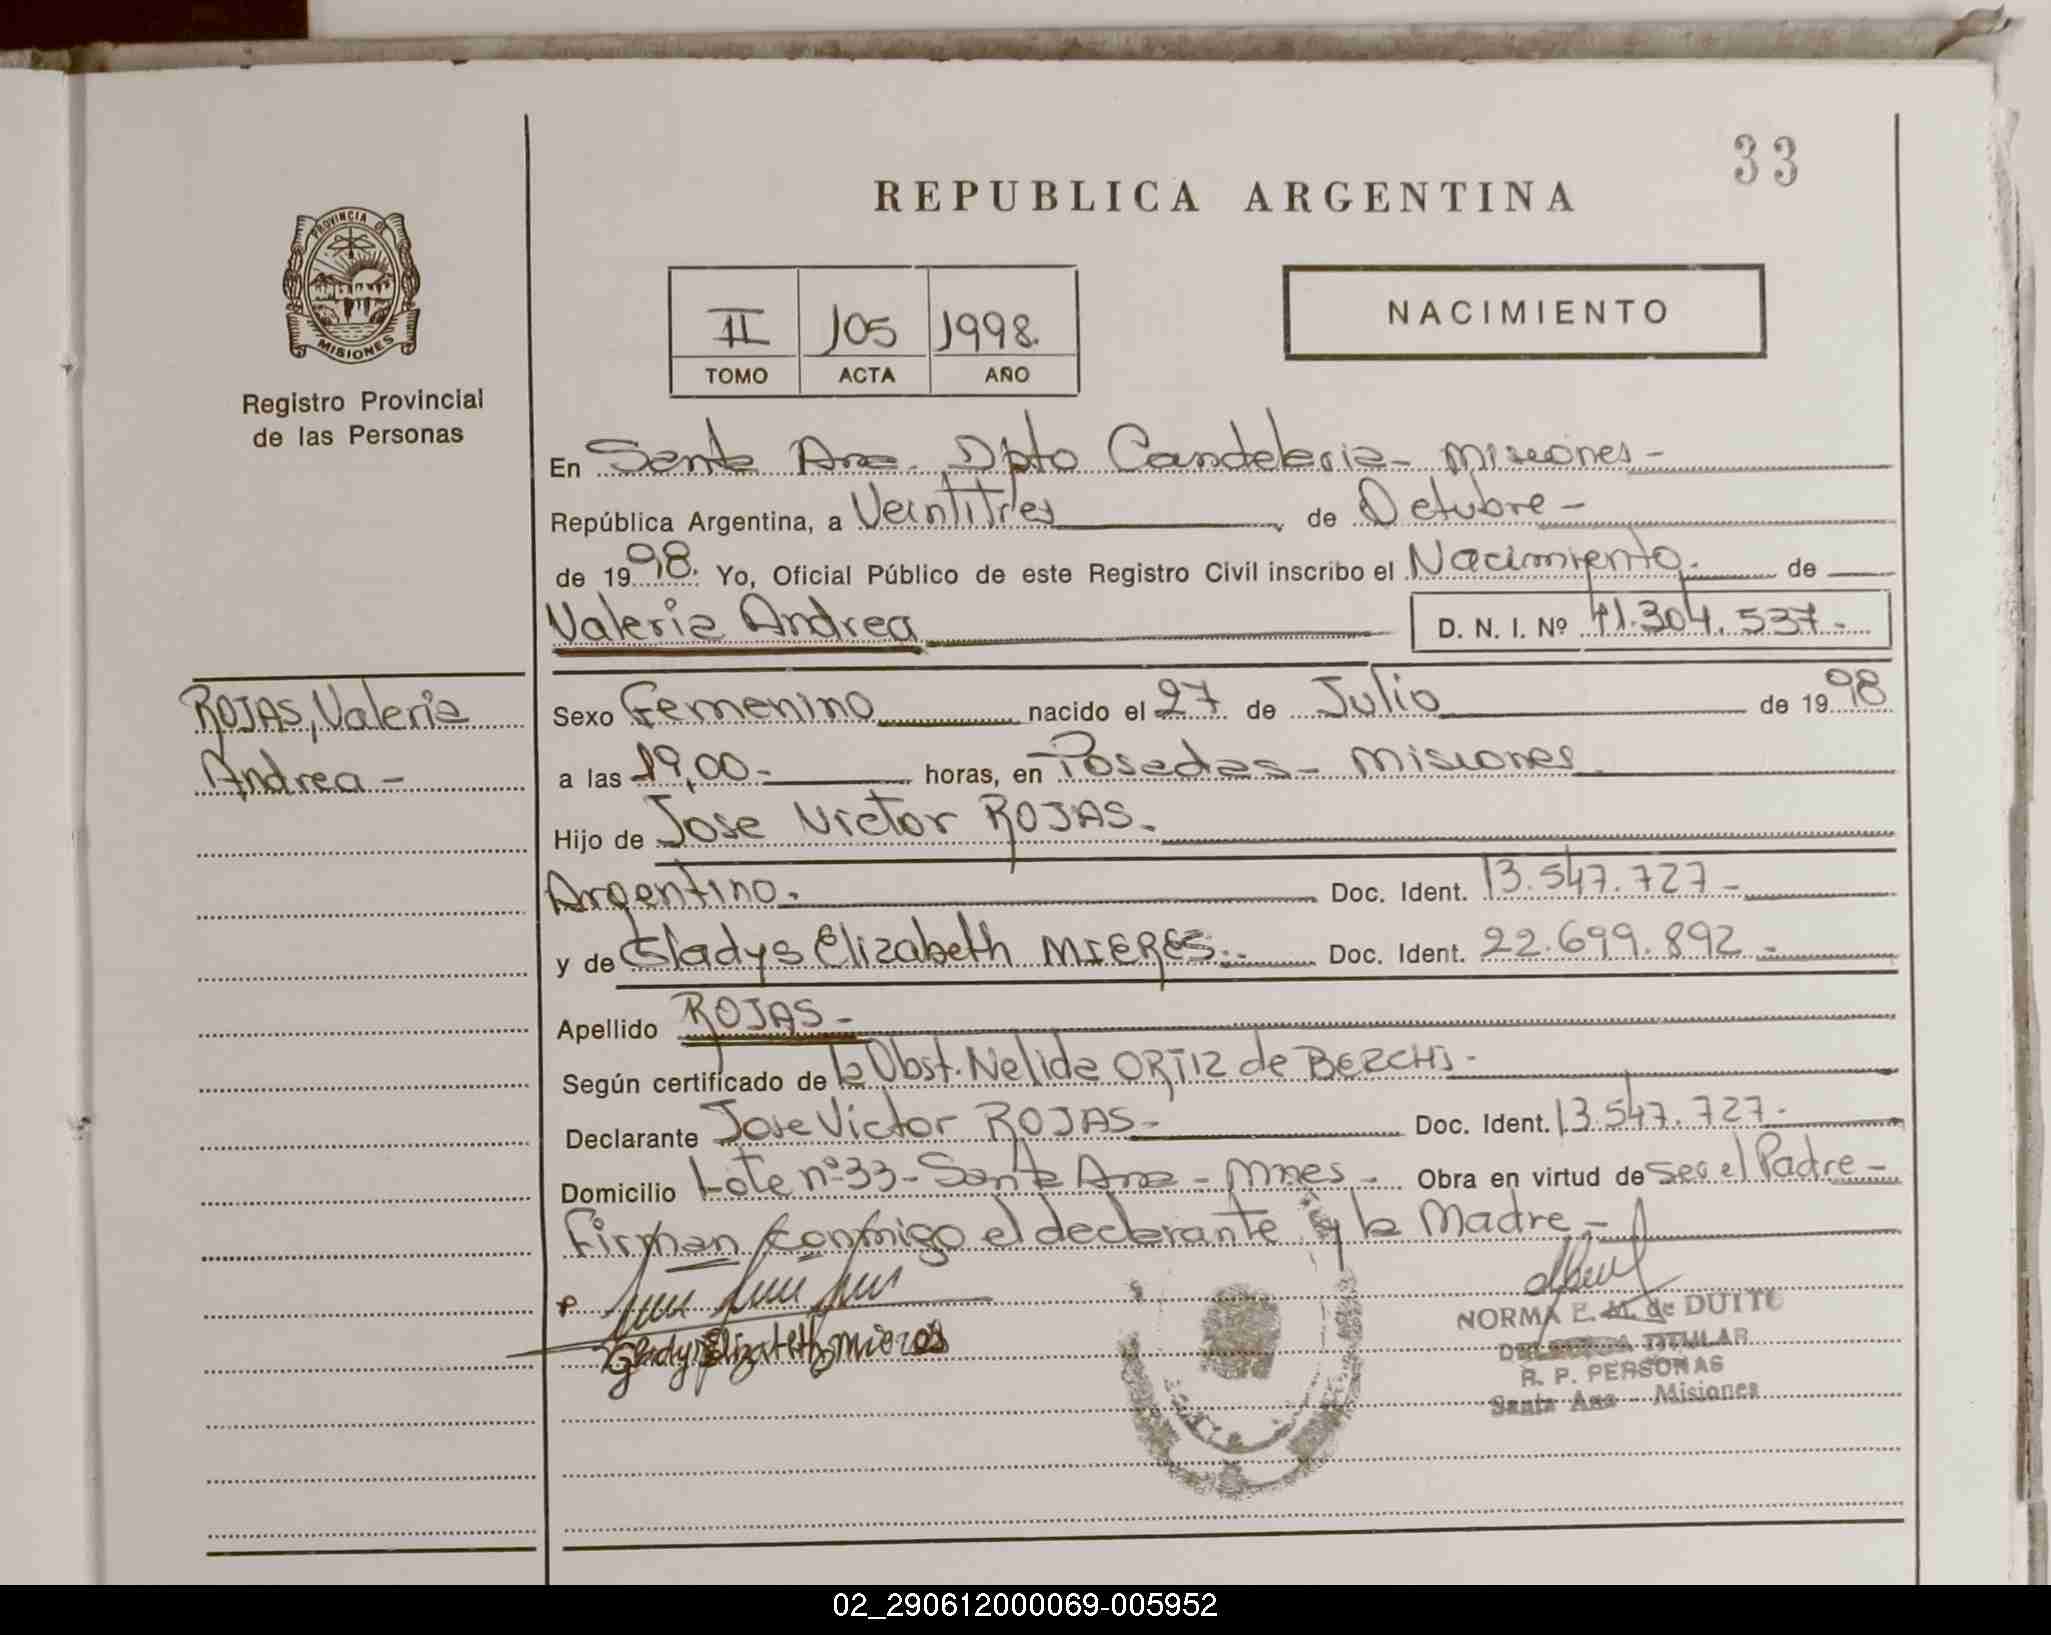 33
REPUBLICA ARGENTINA
PROVINCIA DE
MISIONES
Registro Provincial
de las Personas
II 105 1998.
TOMO ACTA AÑO
NACIMIENTO
En Santa Ana. Dpto Candelaria - Misiones -
República Argentina, a Veintitres de Octubre -
de 1998. Yo, Oficial Público de este Registro Civil inscribo el Nacimiento. de
Valeria Andrea D. N. I. Nº 41.304.537.-
ROJAS, Valeria
Andrea -
Sexo Femenino nacido el 27 de Julio de 1998
a las 19,00.- horas, en Posadas - Misiones
Hijo de Jose Victor ROJAS.
Argentino. Doc. Ident. 13.547.727 -
y de Gladys Elizabeth MIERES.- Doc. Ident. 22.699.892 -
Apellido ROJAS -
Según certificado de la Obst. Nelida ORTIZ de BERCHI -
Declarante Jose Victor ROJAS - Doc. Ident. 13.547.727.
Domicilio Lote nº 33 - Santa Ana - Mnes - Obra en virtud de ser el Padre -
Firman conmigo el declarante y la Madre -
Gladys Elizabeth Mieres
NORMA E. M. de DUTTO
DELEGADA TITULAR
R. P. PERSONAS
Santa Ana - Misiones
02_290612000069-005952